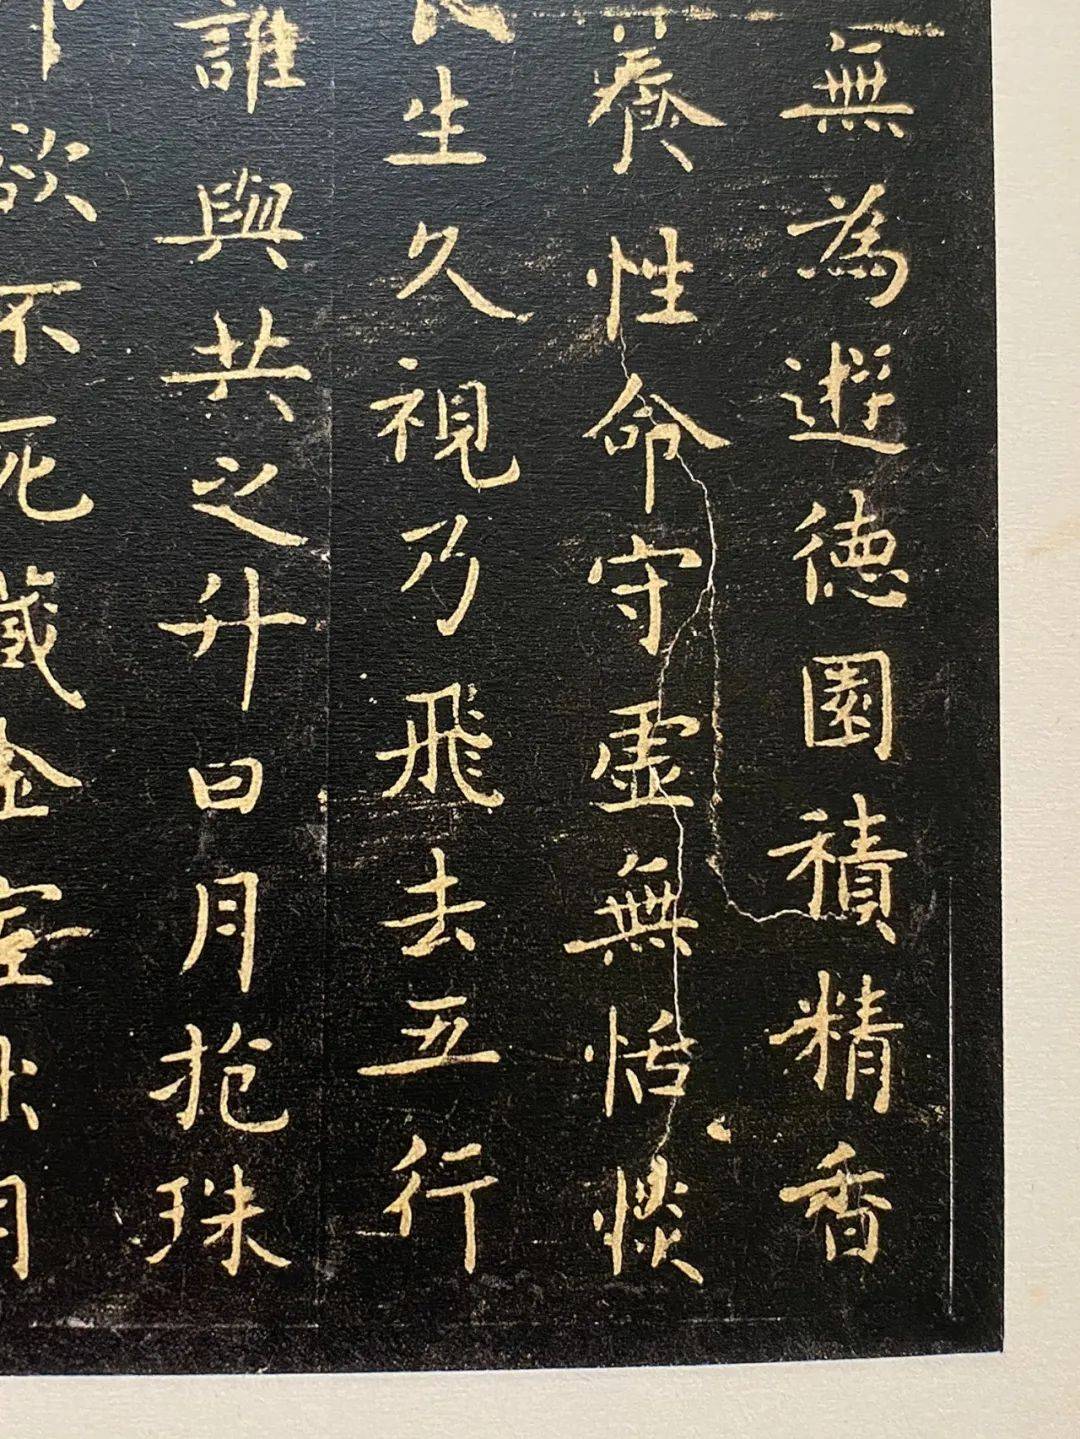 無為遊德園積精香
養性命守虛無恬惔
長生久視乃飛去五行
誰與共之升日月抱珠
欲不死藏金室出月